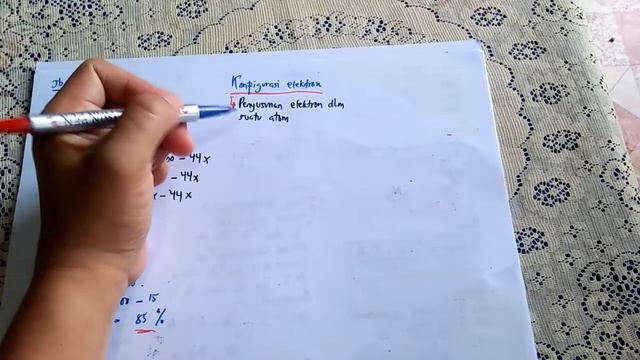 Jb
Konpigurasi elektron
↳ Penyusunan elektron dlm
suatu atom
- 44x
- 44x
- 44x
- 15
= 85 %